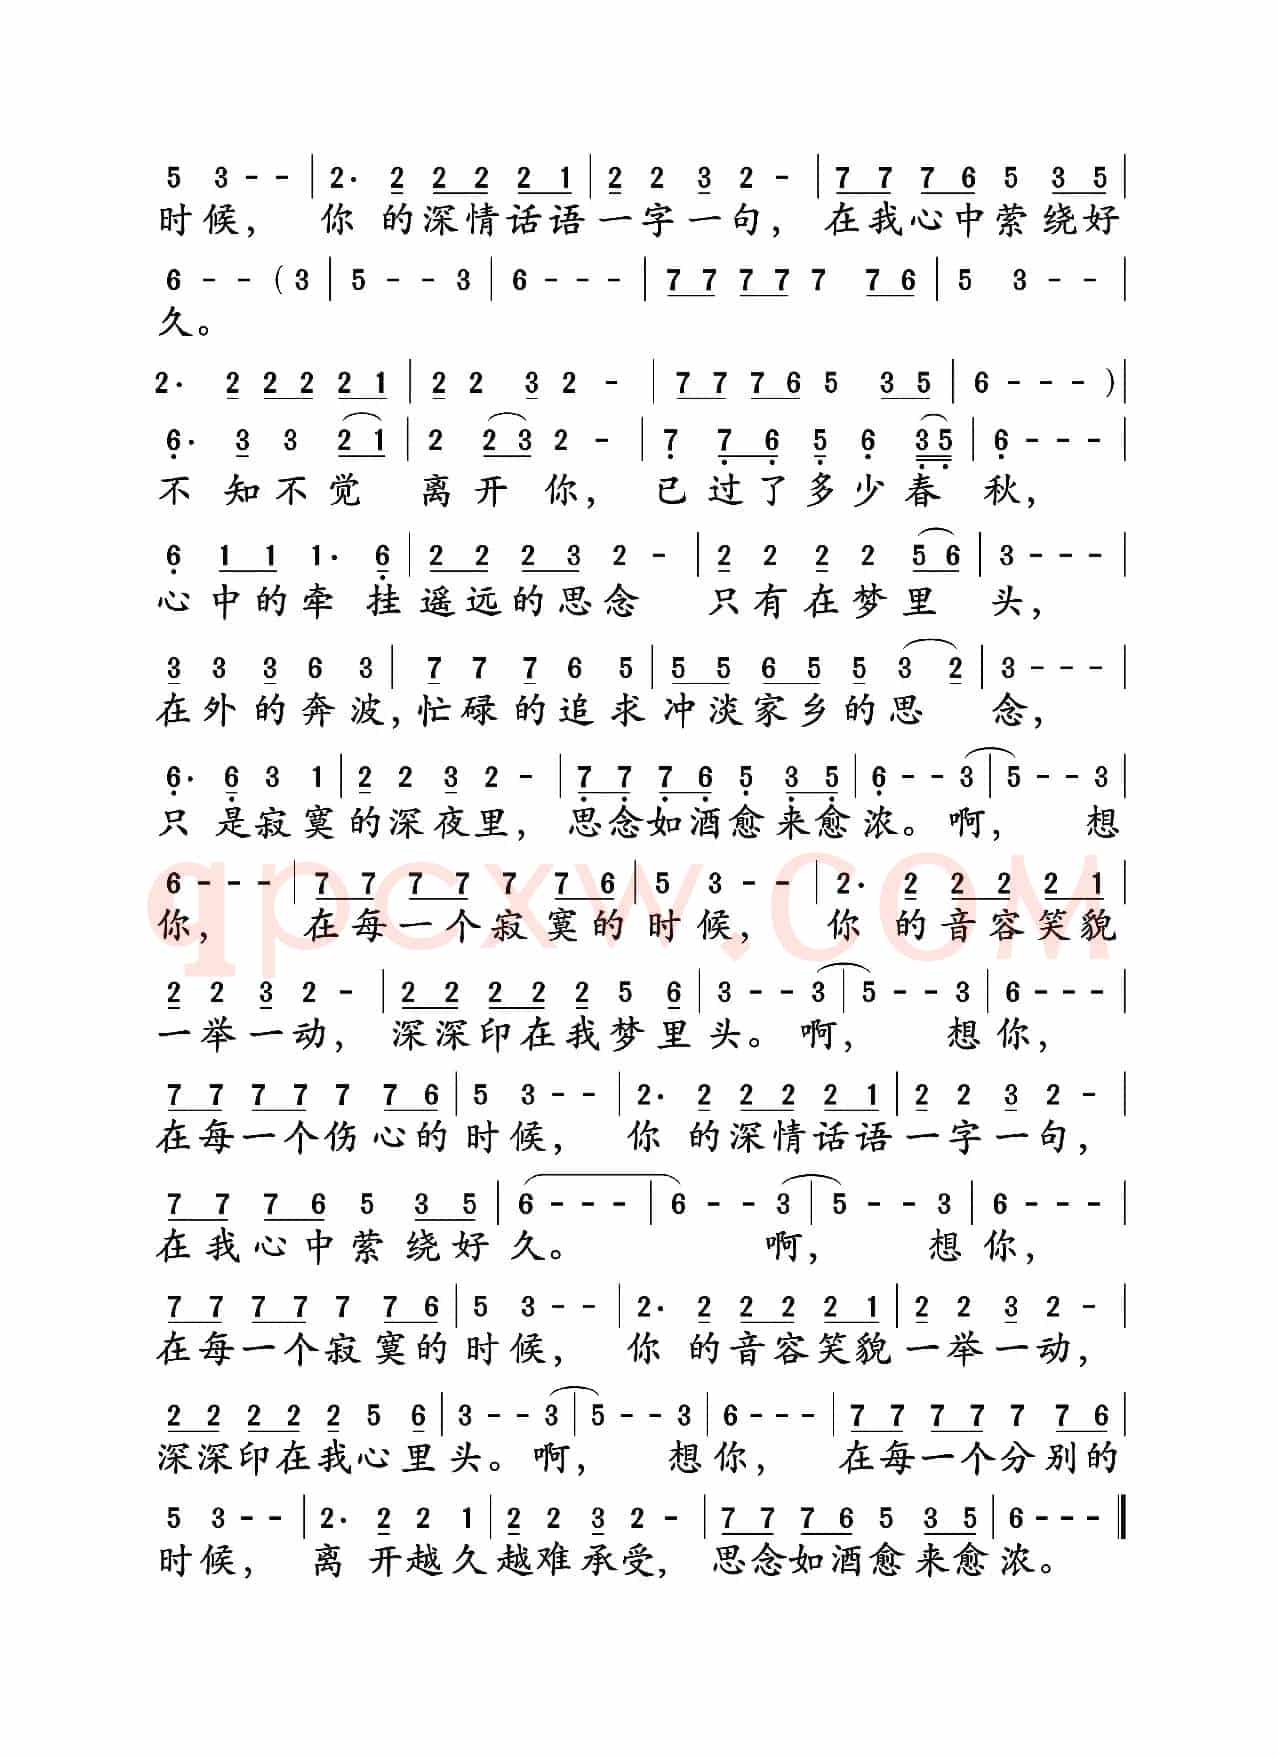 5 3 - - | 2· 2 2 2 2 1 | 2 2 3 2 - | 7 7 7 6 5 3 5 |
时候， 你 的深情话语一字一句， 在我心中萦绕好
6 - - (3 | 5 - - 3 | 6 - - - | 7 7 7 7 7 7 6 | 5 3 - - |
久。
2· 2 2 2 2 1 | 2 2 3 2 - | 7 7 7 6 5 3 5 | 6 - - - )|
6· 3 3 2 1 | 2 2 3 2 - | 7 7 6 5 6 3 5 | 6 - - - |
不 知不觉 离开你， 已过了多少春 秋，
6 1 1 1· 6 | 2 2 2 3 2 - | 2 2 2 2 5 6 | 3 - - - |
心中的牵 挂遥远的思念 只有在梦里 头，
3 3 3 6 3 | 7 7 7 6 5 | 5 5 6 5 5 3 2 | 3 - - - |
在外的奔波，忙碌的追求冲淡家乡的思 念，
6· 6 3 1 | 2 2 3 2 - | 7 7 7 6 5 3 5 | 6 - - 3 | 5 - - 3 |
只 是寂寞的深夜里， 思念如酒愈来愈浓。啊， 想
6 - - - | 7 7 7 7 7 7 6 | 5 3 - - | 2· 2 2 2 2 1 |
你， 在每一个寂寞的时候， 你 的音容笑貌
qpcxw.COM
2 2 3 2 - | 2 2 2 2 2 5 6 | 3 - - 3 | 5 - - 3 | 6 - - - |
一举一动， 深深印在我梦里头。啊， 想你，
7 7 7 7 7 7 6 | 5 3 - - | 2· 2 2 2 2 1 | 2 2 3 2 - |
在每一个伤心的时候， 你 的深情话语一字一句，
7 7 7 6 5 3 5 | 6 - - - | 6 - - 3 | 5 - - 3 | 6 - - - |
在我心中萦绕好久。 啊， 想你，
7 7 7 7 7 7 6 | 5 3 - - | 2· 2 2 2 2 1 | 2 2 3 2 - |
在每一个寂寞的时候， 你 的音容笑貌一举一动，
2 2 2 2 2 5 6 | 3 - - 3 | 5 - - 3 | 6 - - - | 7 7 7 7 7 7 6 |
深深印在我心里头。啊， 想你， 在每一个分别的
5 3 - - | 2· 2 2 1 | 2 2 3 2 - | 7 7 7 6 5 3 5 | 6 - - - ‖
时候， 离 开越久越难承受，思念如酒愈来愈浓。